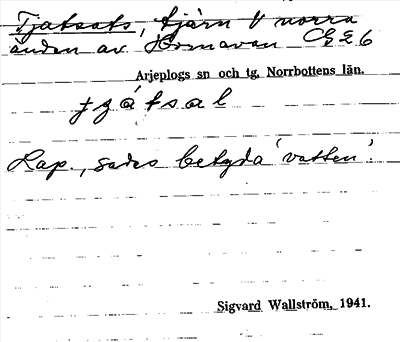 Tjatsats, tjärn V norra
änden av Hornavan GE6
Arjeplogs sn och tg. Norrbottens län.
tjátsal
Lap., sades betyda 'vatten'.
Sigvard Wallström, 1941.